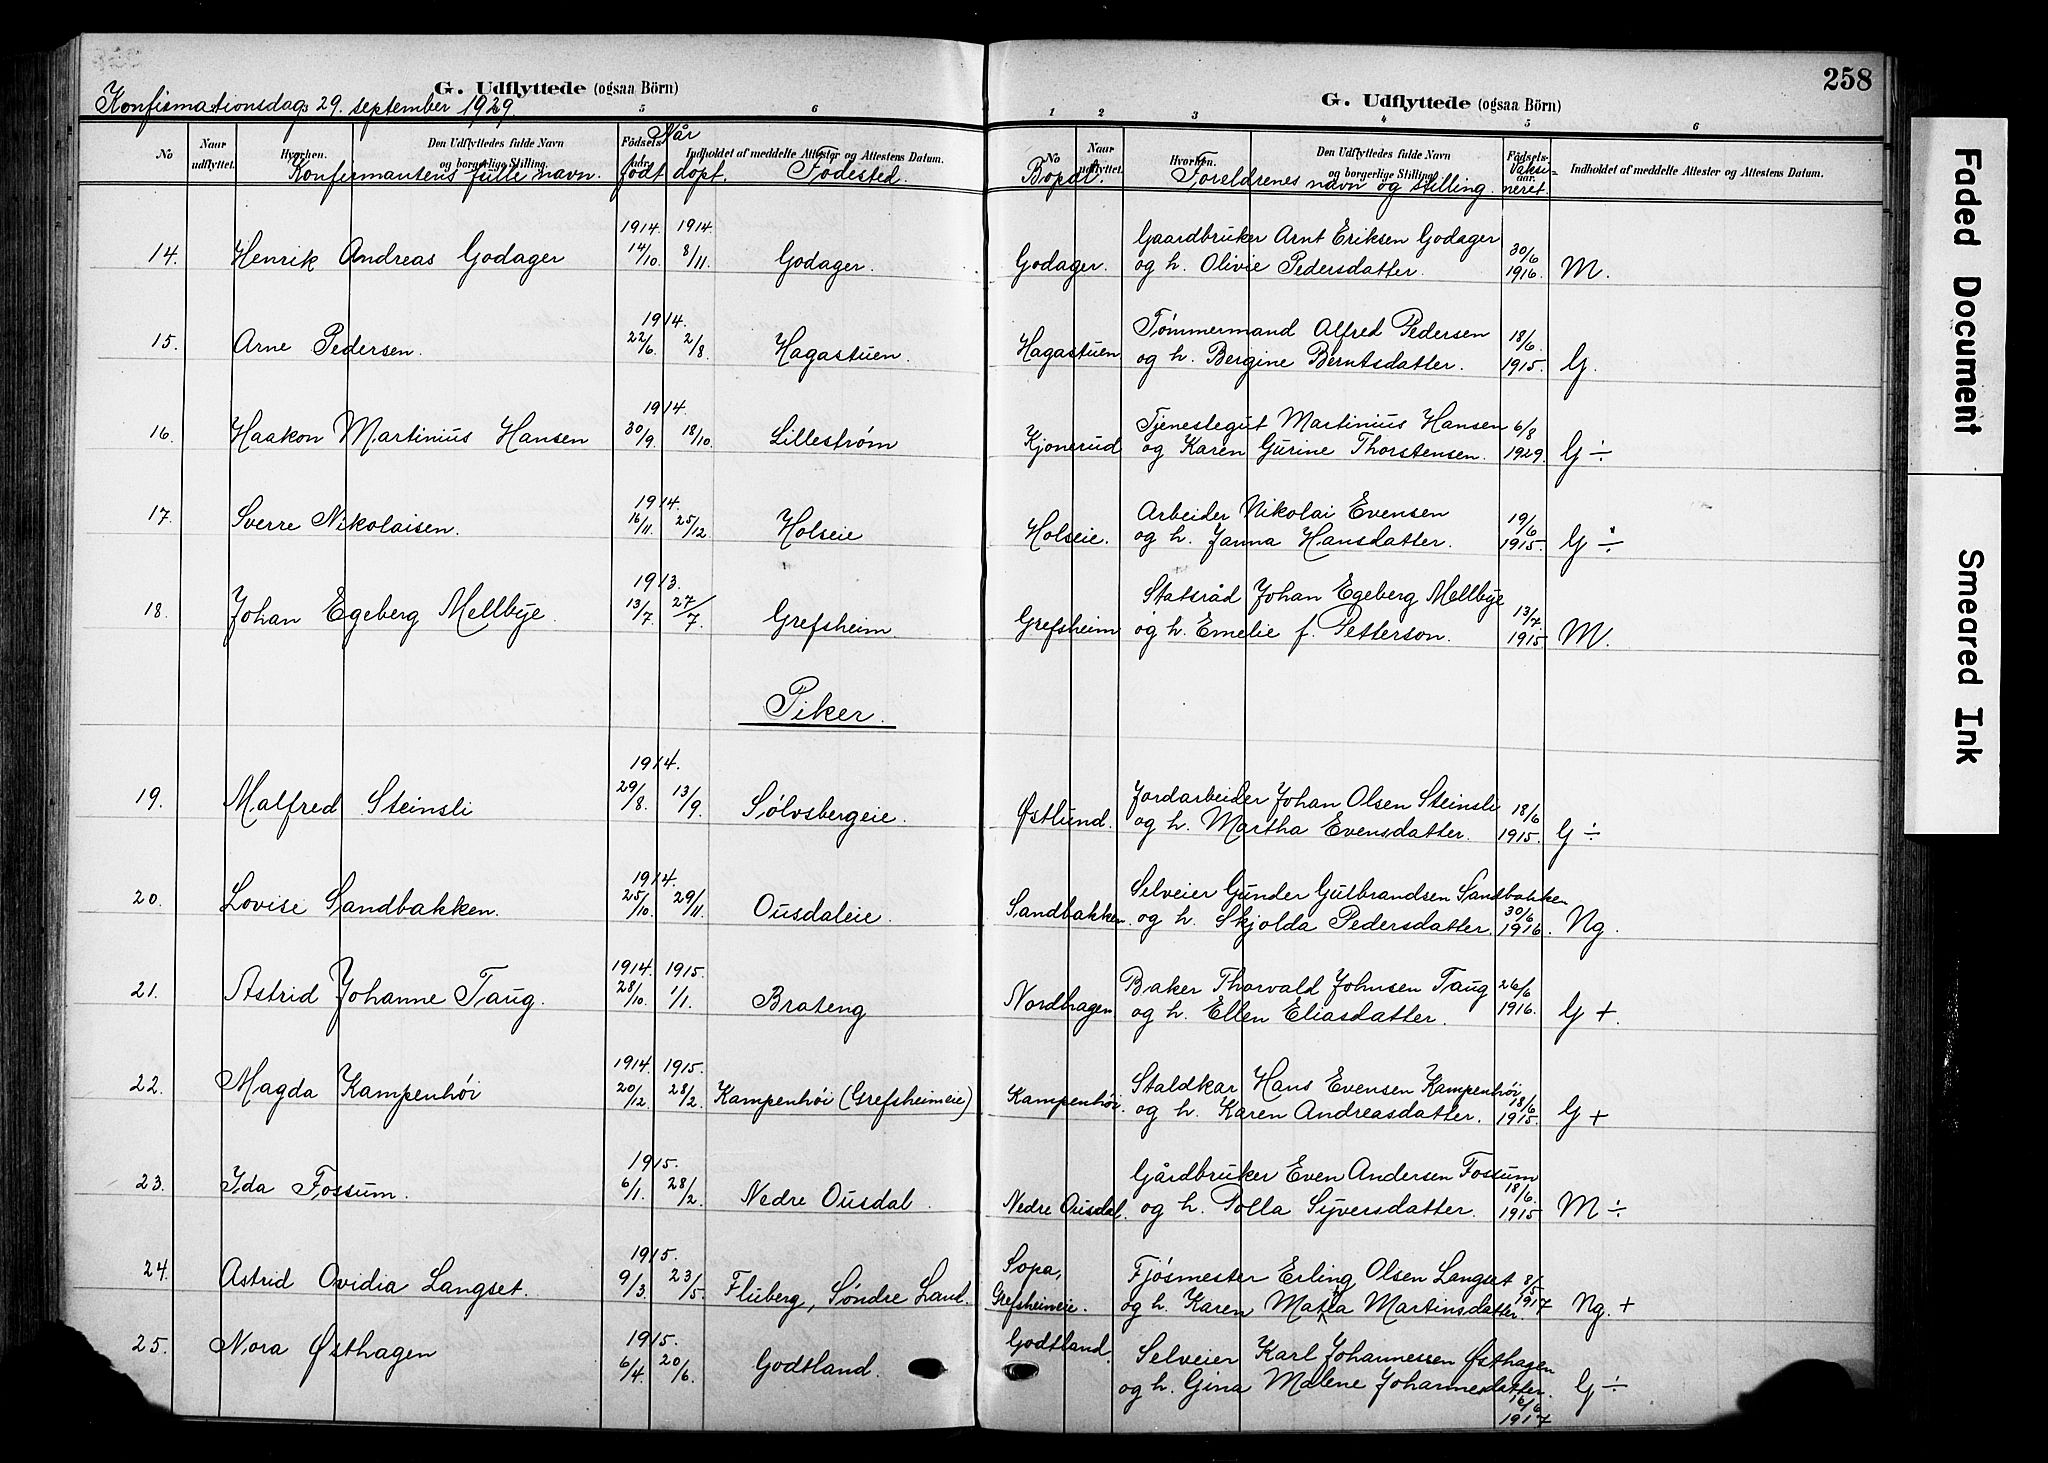 G. Udflyttede (ogsaa Börn)
Konfirmationsdag 29. september 1929.
5 6
No
Naar udflyttet.
Hvorhen.
Den Udflyttedes fulde Navn og borgerlige Stilling.
Fødsels-aar.
Indholdet af meddelte Attester og Attestens Datum.
Konfirmantens fulle navn.
Når
født døpt.
Fødested.
14. Henrik Andreas Godager 1914. 14/10. 1914. 8/11. Godager.
15. Arne Pedersen. 1914. 22/6. 2/8. Hagastuen.
16. Haakon Martinius Hansen 1914. 30/9. 18/10. Lillestrøm
17. Sverre Nikolaisen. 1914. 16/11. 25/12 Holseie
18. Johan Egeberg Mellbye. 1913. 13/7. 27/7. Grefsheim
Piker.
19. Malfred Steinsli 1914. 29/8. 13/9. Sølvsbergeie.
20. Lovise Sandbakken. 1914. 25/10. 29/11. Ousdaleie.
21. Astrid Johanne Taug. 1914. 28/10. 1915. 1/1. Brateng
22. Magda Kampenhöi 1914. 20/12. 1915. 28/2. Kampenhöi (Grefsheimeie)
23. Ida Fossum. 1915. 6/1. 28/2. Nedre Ousdal.
24. Astrid Ovidia Langset. 1915. 9/3. 23/5. Fluberg, Søndre Land.
25. Nora Østhagen 1915. 6/4. 20/6. Godtland.
258
G. Udflyttede (ogsaa Börn)
1 2 3 4 5 6
No
Naar udflyttet.
Hvorhen.
Den Udflyttedes fulde Navn og borgerlige Stilling.
Fødsels-aar.
Indholdet af meddelte Attester og Attestens Datum.
Bopæl.
Foreldrenes navn og stilling.
Vaksi-neret.
Gaardbruker Arnt Eriksen Godager
Godager. og h. Olivie Pedersdatter. 30/6 1916. M.
Tømmermand Alfred Pedersen
Hagastuen og h. Bergine Berntsdatter. 18/6. 1915. G.
Tjenestegut Martinius Hansen
Kjonerud og Karen Gurine Thorstensen. 6/8 1929. G ÷
Arbeider Nikolai Evensen
Holseie. og h. Janna Hansdatter. 19/6 1915. G ÷
Statsråd Johan Egeberg Mellbye
Grefsheim og h. Emelie f. Petterson. 13/7 1915. M.
Jordarbeider Johan Olsen Steinsli
Østlund. og h. Martha Evensdatter. 18/6 1915. G ÷
Selveier Gunder Gulbrandsen Sandbakken
Sandbakken. og h. Skjolda Pedersdatter. 30/6 1916. Ng.
Baker Thorvald Johnsen Taug
Nordhagen og h. Ellen Eliasdatter. 26/6 1916. G +.
Staldkar Hans Evensen Kampenhöi
Kampenhöi. og h. Karen Andreasdatter. 18/6 1915. G +
Gårdbruker Even Andersen Fossum
Nedre Ousdal. og h. Polla Syversdatter. 18/6. 1915 M ÷
Sopa, Fjösmester Erling Olsen Langset
Grefsheimeie. og h. Karen Matla Martinsdatter. 8/5 1917 Ng. +
Godtland. Selveier Karl Johannessen Østhagen
og h. Gina Malene Johannesdatter. 16/6 1917 G ÷
Faded Document
Smeared Ink